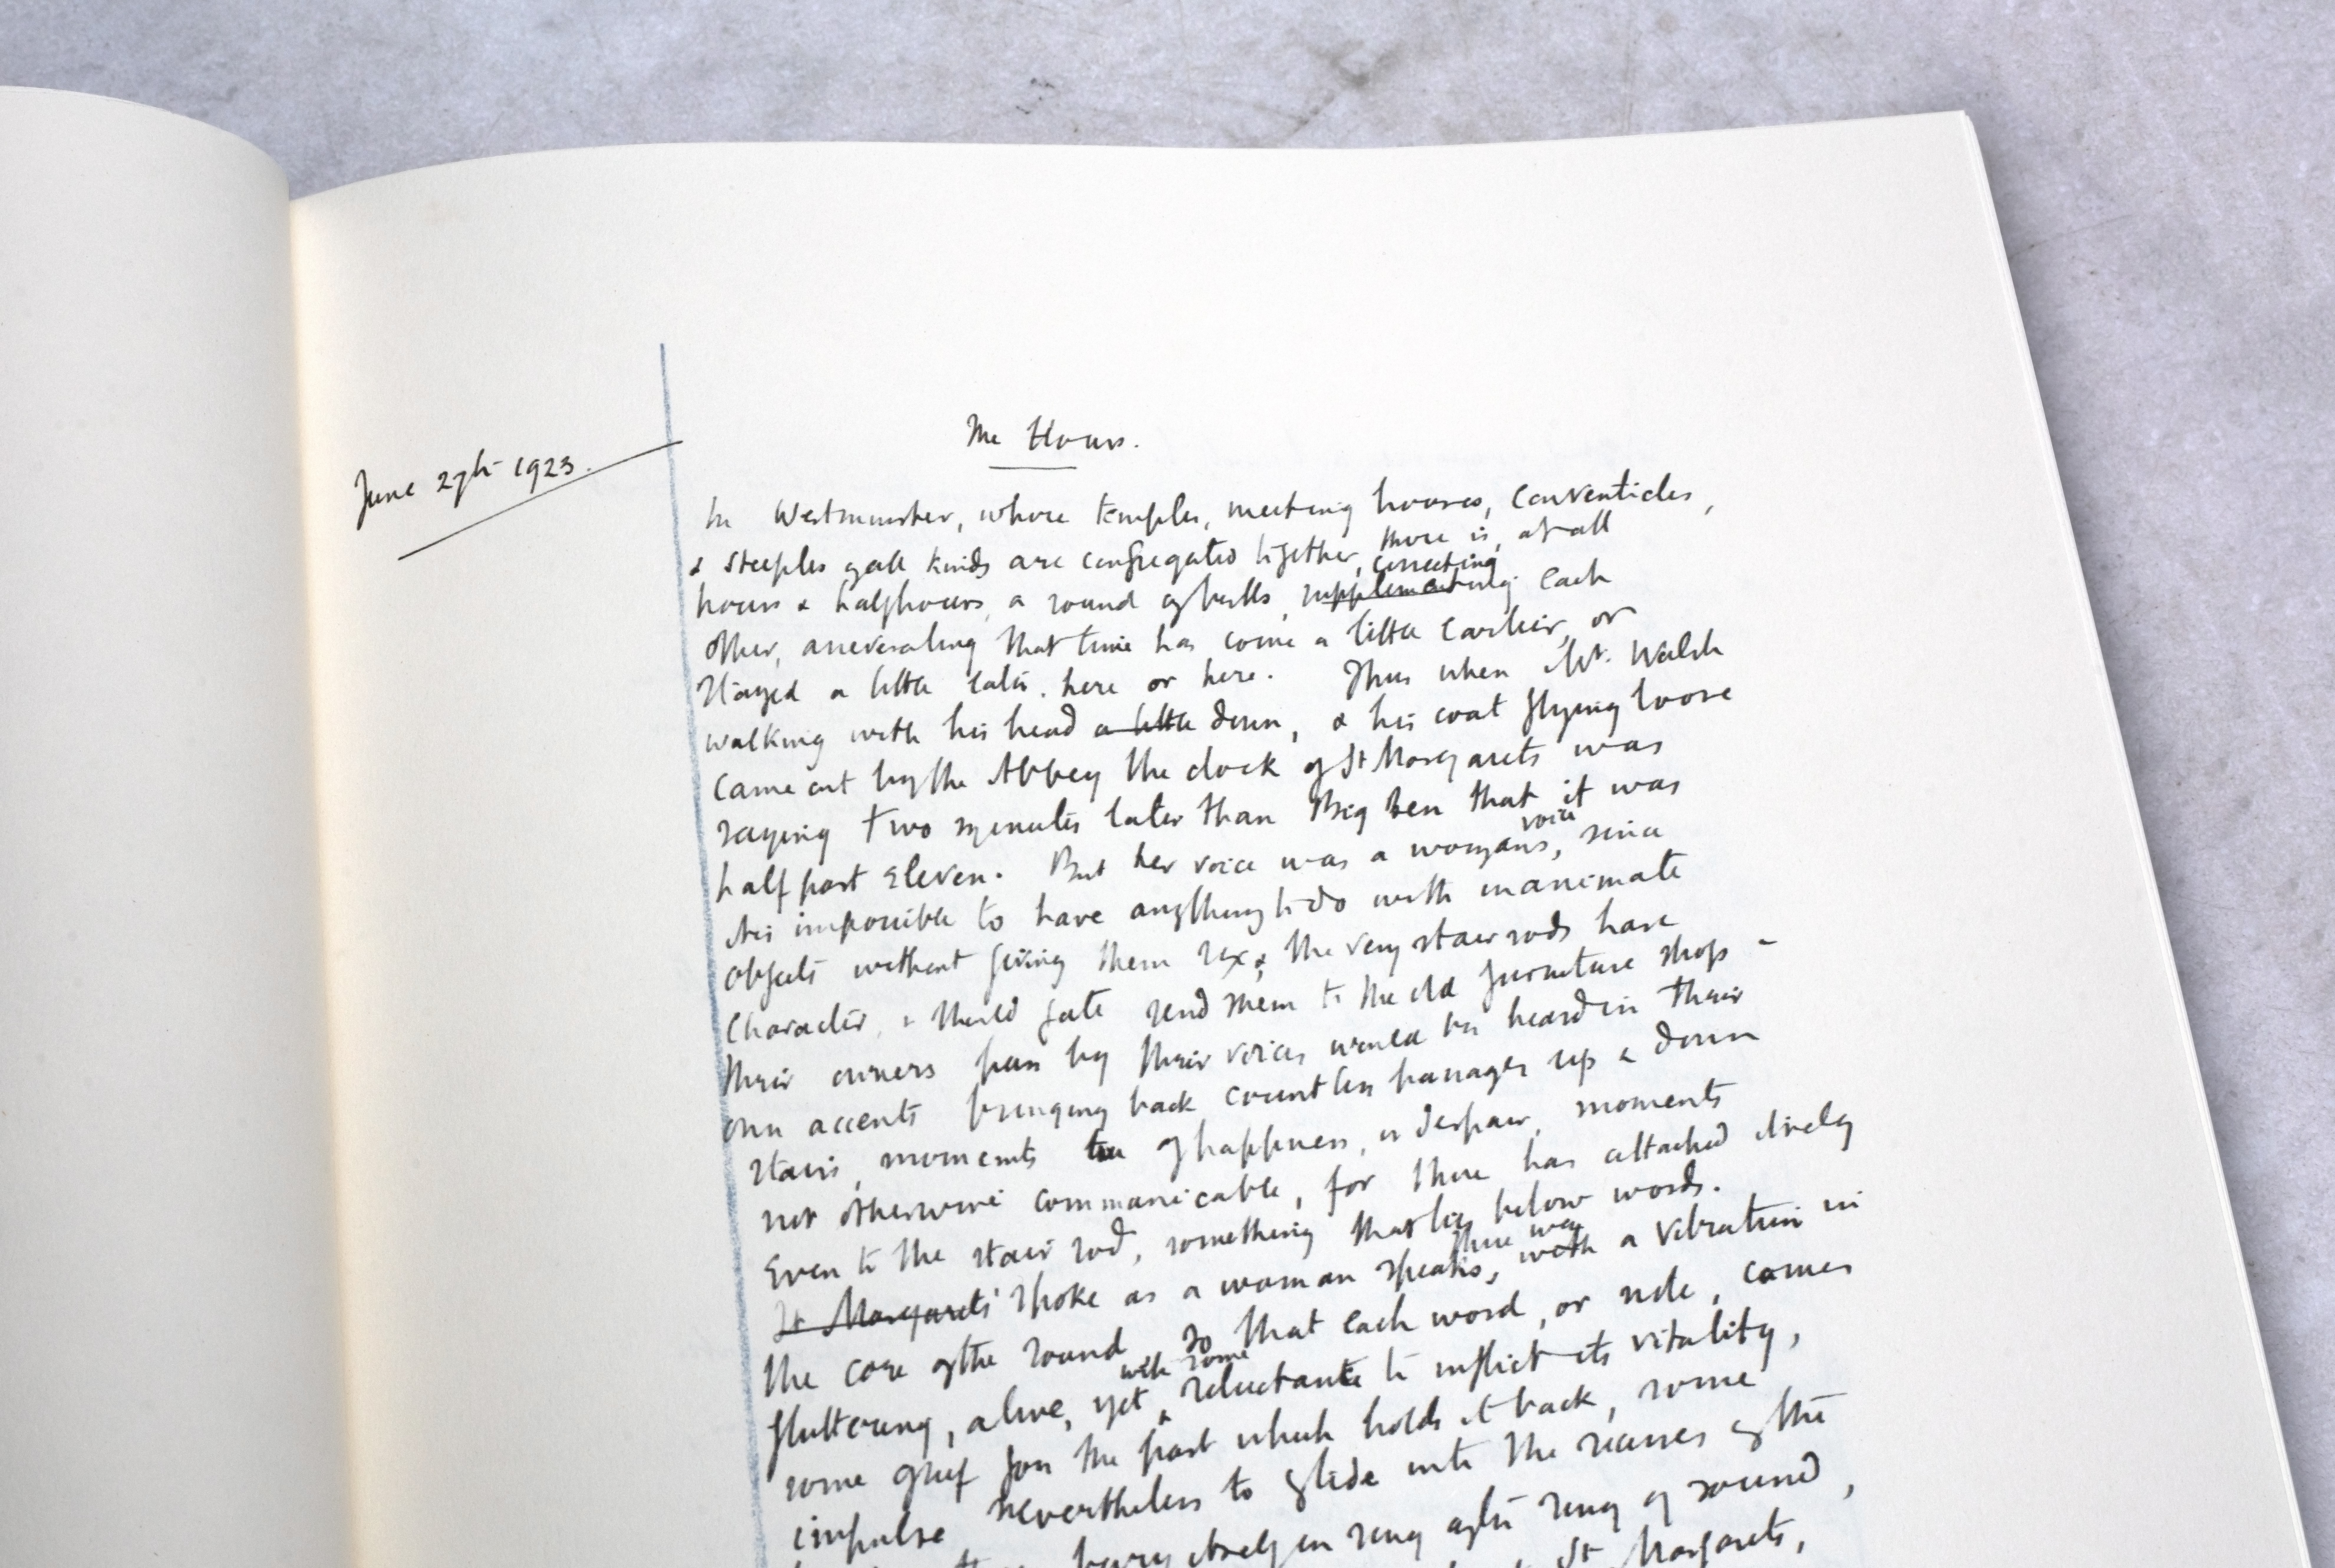 The Hours.
June 27th 1923.
In Westminster, where temples, meeting houses, conventicles,
& steeples of all kinds are congregated together, there is, at all
correcting
hours & halfhours, a round of bells, supplementing each
other, asseverating that time has come a little earlier, or
stayed a little later, here or here. Thus when Mr. Walsh
walking with his head a little down, & his coat flying loose
came out by the Abbey the clock of St Margarets was
saying two minutes later than Big Ben that it was
voice
half past eleven. But her voice was a woman's, since
it is impossible to have anything to do with inanimate
objects without giving them sex; the very stair rods have
character, & should fate send them to the old furniture shop -
their owners pass by their voices would be heard in their
own accents bringing back countless passages up & down
stairs, moments of happiness, or despair, moments
not otherwise communicable, for there has attached itself
even to the stair rod, something that lies below words.
there was
St Margarets' spoke as a woman speaks, with a vibration in
the core of the sound so that each word, or note, comes
with some
fluttering, alive, yet reluctance to inflict its vitality,
some grief for the past which holds it back, some
impulse nevertheless to glide into the recesses of the
bury itself in ring after ring of sound,
St Margarets,